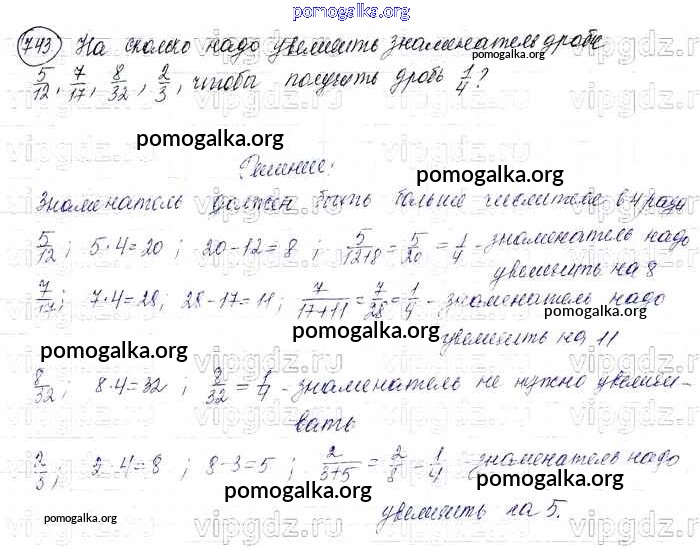 pomogalka.org
743 На сколько надо увеличить знаменатель дроби
5/12, 7/17, 8/32, 2/3, чтобы получить дробь 1/4?
pomogalka.org
pomogalka.org
pomogalka.org
Решение:
Знаменатель должен быть больше числителя в 4 раза
5/12; 5·4=20; 20-12=8; 5/12+8=5/20=1/4 - знаменатель надо
увеличить на 8
7/17; 7·4=28; 28-17=11; 7/17+11=7/28=1/4 - знаменатель надо
pomogalka.org
pomogalka.org
увеличить на 11
pomogalka.org
8/32; 8·4=32; 8/32=1/4 - знаменатель не нужно увеличи-
вать
pomogalka.org
2/3; 2·4=8; 8-3=5; 2/3+5=2/8=1/4 - знаменатель надо
pomogalka.org
pomogalka.org
увеличить на 5.
pomogalka.org
vipgdz.ru